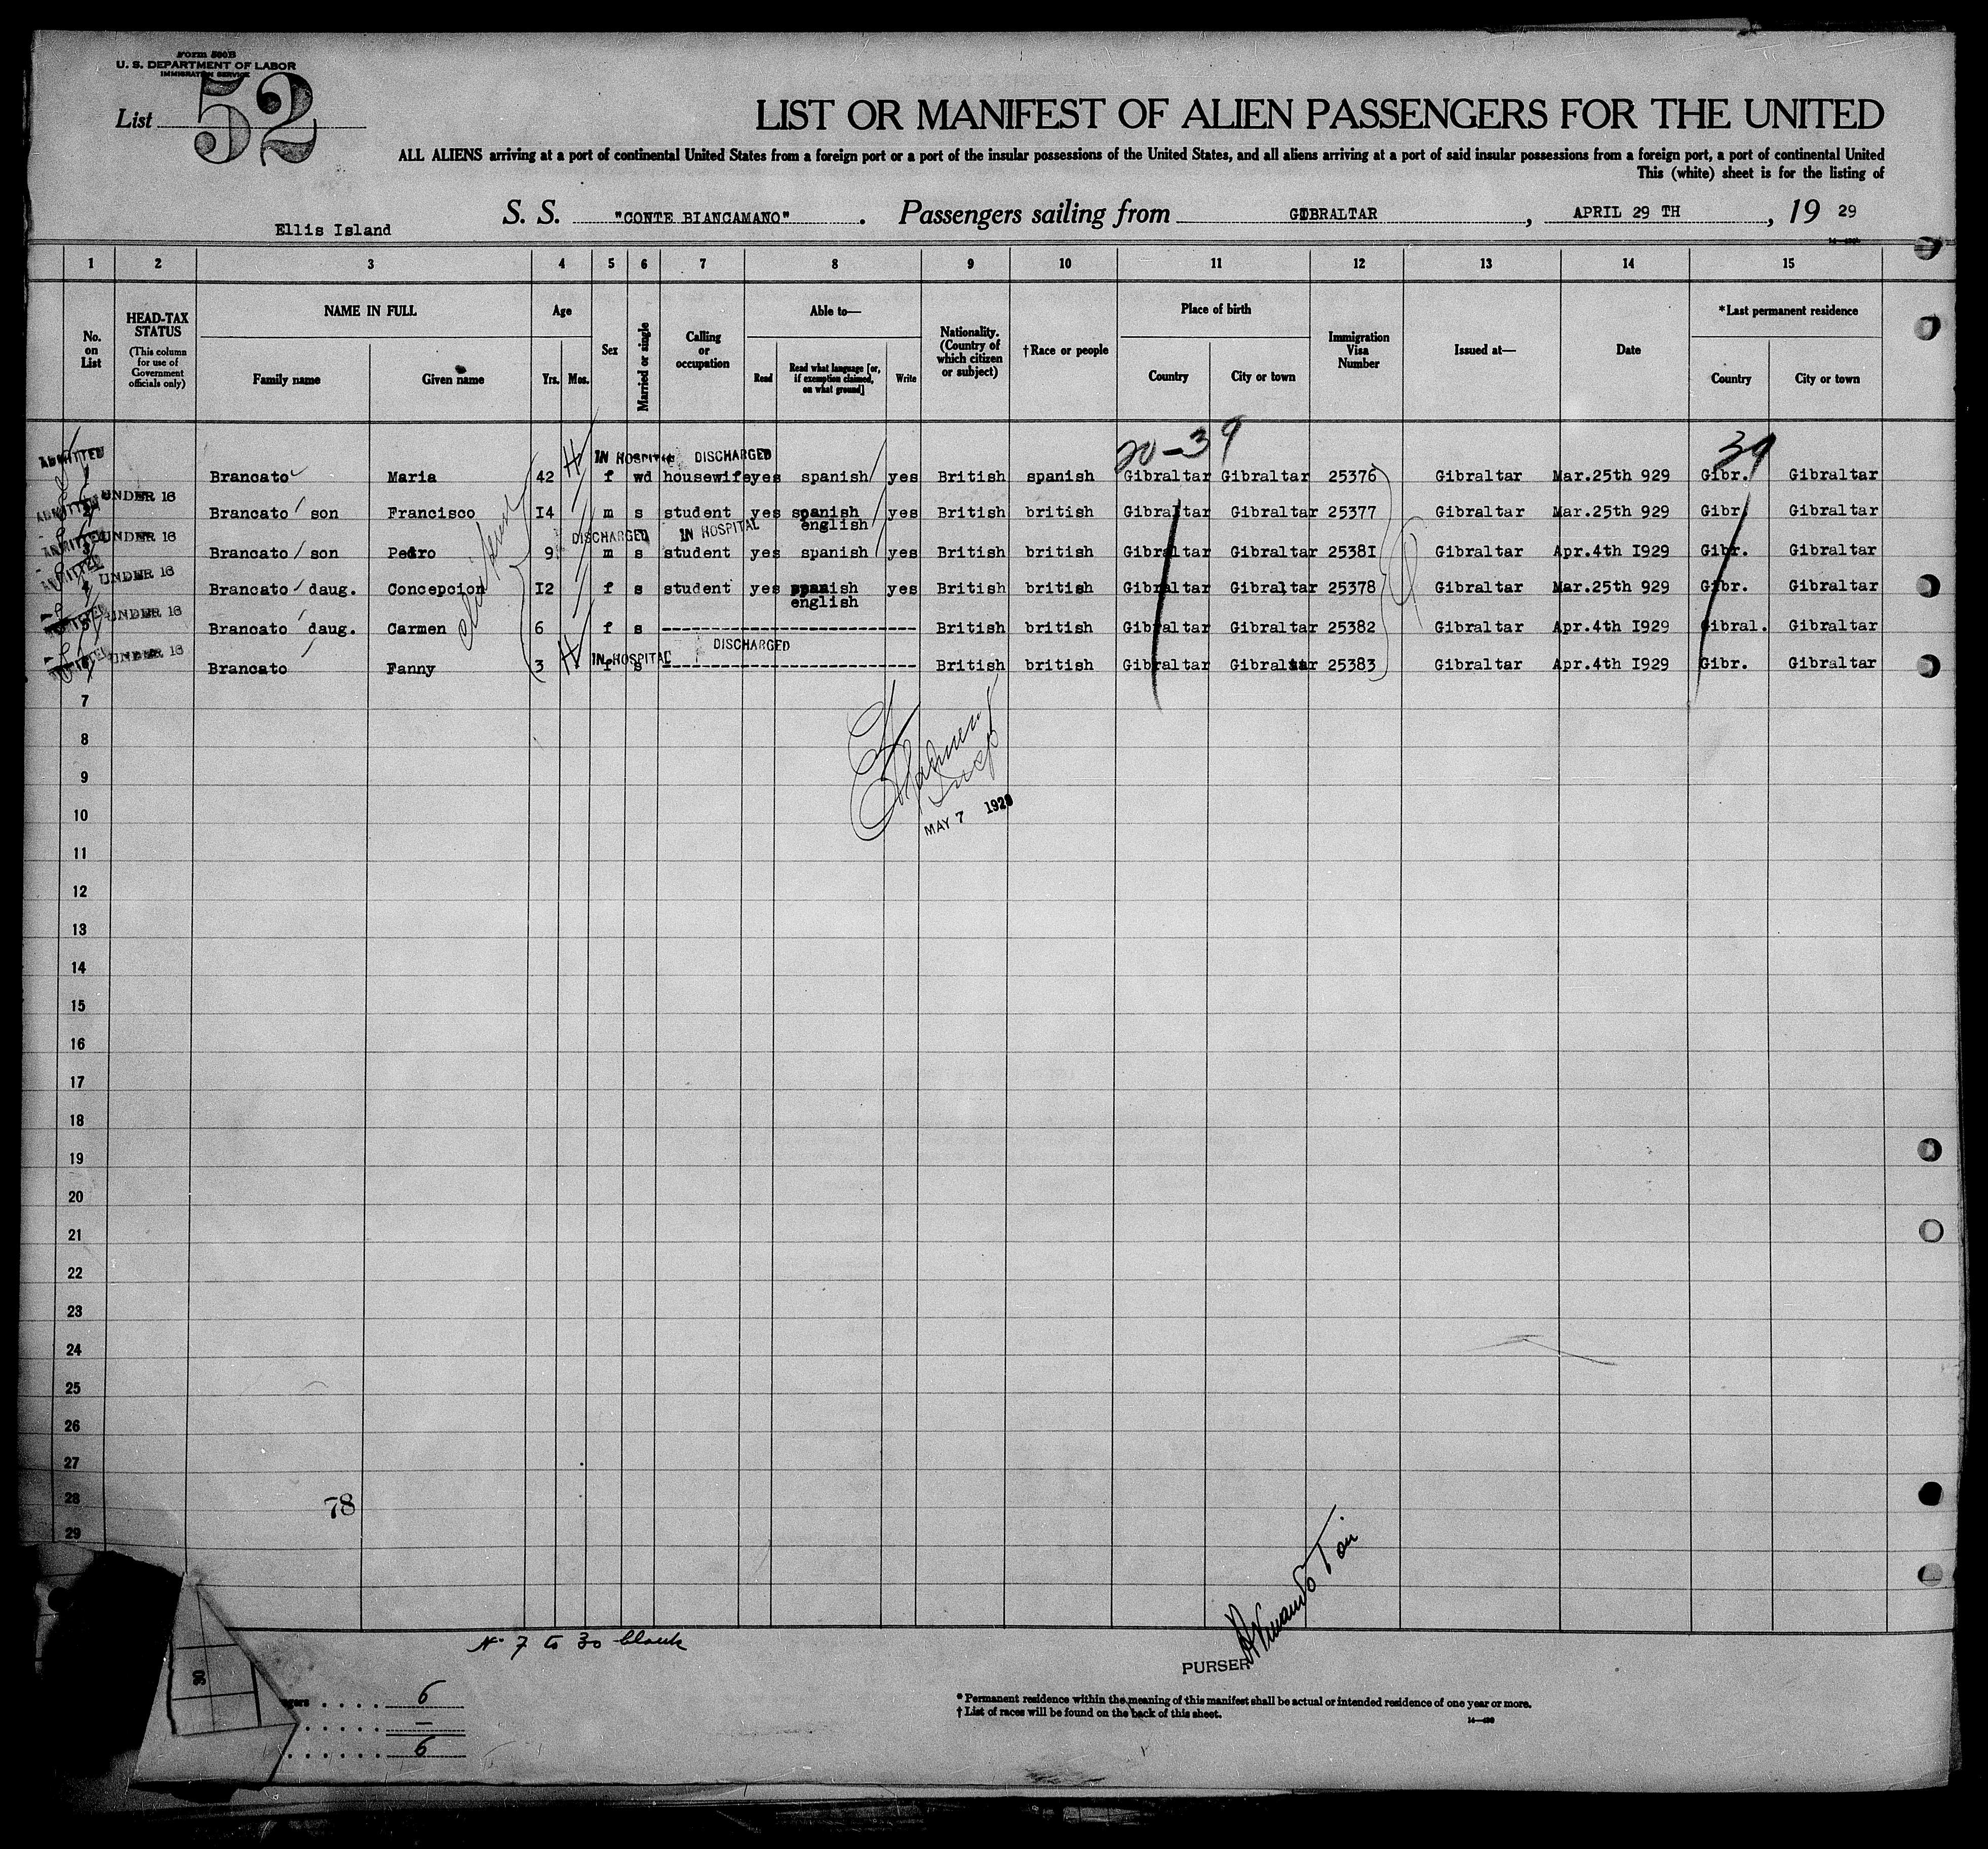 Form 500B
U. S. DEPARTMENT OF LABOR
IMMIGRATION SERVICE
List 52
LIST OR MANIFEST OF ALIEN PASSENGERS FOR THE UNITED
ALL ALIENS arriving at a port of continental United States from a foreign port or a port of the insular possessions of the United States, and all aliens arriving at a port of said insular possessions from a foreign port, a port of continental United
This (white) sheet is for the listing of
Ellis Island S. S. "CONTE BIANCAMANO". Passengers sailing from GIBRALTAR, APRIL 29 TH, 19 29
1 2 3 4 5 6 7 8 9 10 11 12 13 14 15
No. on List
HEAD-TAX STATUS
(This column for use of Government officials only)
NAME IN FULL
Family name Given name
Age
Yrs. Mos.
Sex
Married or single
Calling or occupation
Able to—
Read Read what language [or, if exemption claimed, on what ground] Write
Nationality. (Country of which citizen or subject)
†Race or people
Place of birth
Country City or town
Immigration Visa Number
Issued at—
Date
*Last permanent residence
Country City or town
20-39 39
ADMITTED IN HOSPITAL DISCHARGED
Brancato Maria 42 f wd housewife yes spanish yes British spanish Gibraltar Gibraltar 25376 Gibraltar Mar.25th 929 Gibr. Gibraltar
ADMITTED UNDER 16
Brancato son Francisco I4 m s student yes spanish english yes British british Gibraltar Gibraltar 25377 Gibraltar Mar.25th 929 Gibr. Gibraltar
ADMITTED UNDER 16 DISCHARGED IN HOSPITAL
Brancato son Pedro 9 m s student yes spanish yes British british Gibraltar Gibraltar 2538I Gibraltar Apr.4th I929 Gibr. Gibraltar
ADMITTED UNDER 16
Brancato daug. Concepcion I2 f s student yes spanish english yes British british Gibraltar Gibraltar 25378 Gibraltar Mar.25th 929 Gibr. Gibraltar
ADMITTED UNDER 16
Brancato daug. Carmen 6 f s British british Gibraltar Gibraltar 25382 Gibraltar Apr.4th I929 Gibral. Gibraltar
ADMITTED UNDER 16 IN HOSPITAL DISCHARGED
Brancato Fanny 3 f s British british Gibraltar Gibraltar 25383 Gibraltar Apr.4th I929 Gibr. Gibraltar
7
8
9
MAY 7
10
11
12
13
14
15
16
17
18
19
20
21
22
23
24
25
26
27
28 78
29
30
No 7 to 30 blank
PURSER
6
—
6
* Permanent residence within the meaning of this manifest shall be actual or intended residence of one year or more.
† List of races will be found on the back of this sheet.